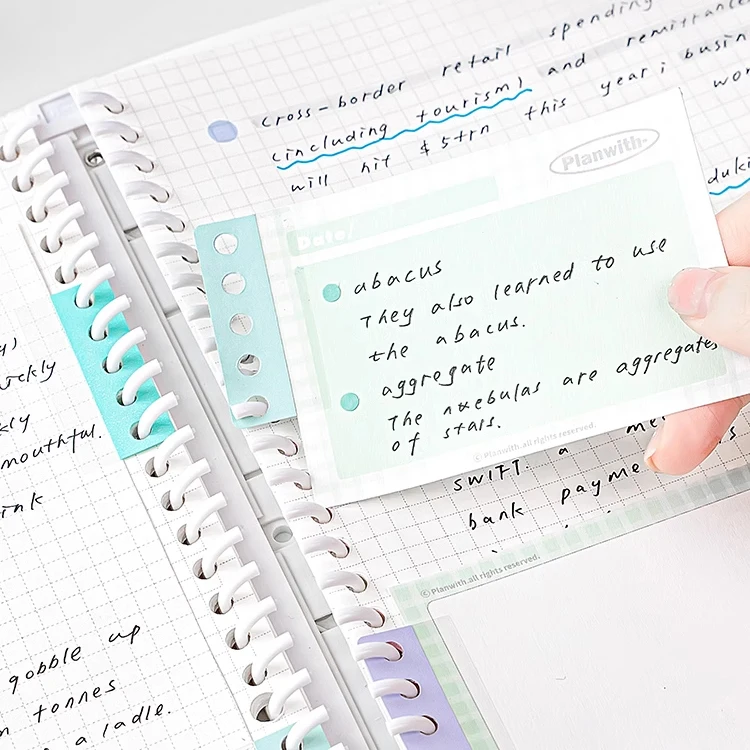 cross-border retail spending
(including tourism) and remittance
will hit $5trn this year; busin
Planwith-
Date/
abacus
They also learned to use
the abacus.
aggregate
The nxebulas are aggregates
of stars.
©Planwith.all rights reserved.
SWIFT a
bank payme
©Planwith.all rights reserved.
mouthful.
ink
gobble up
tonnes
a ladle.